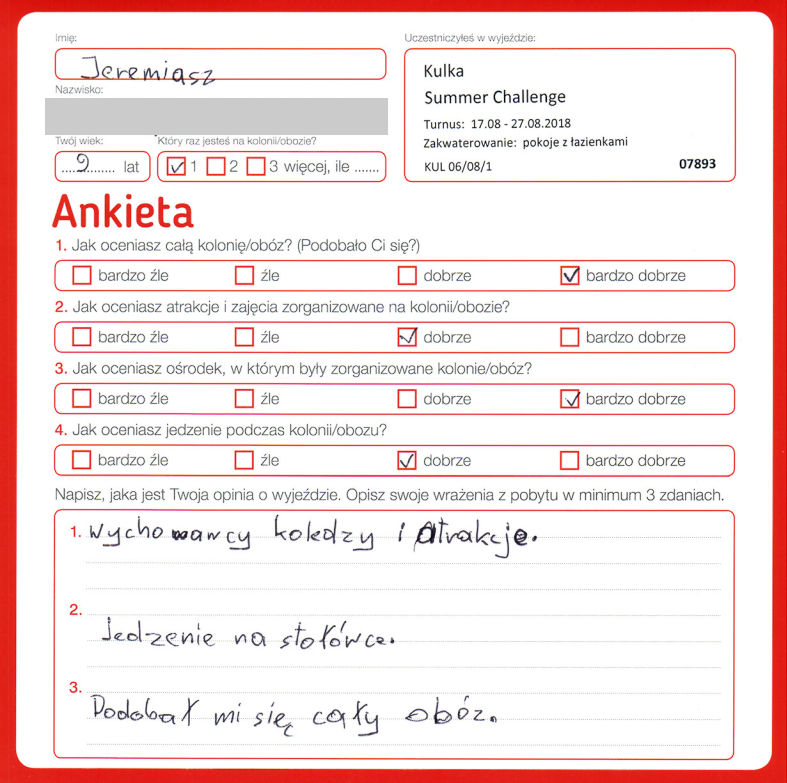 Imię:
Jeremiasz
Nazwisko:
Twój wiek:
Który raz jesteś na kolonii/obozie?
9 lat
1 2 3 więcej, ile .......
Uczestniczyłeś w wyjeździe:
Kulka
Summer Challenge
Turnus: 17.08 - 27.08.2018
Zakwaterowanie: pokoje z łazienkami
KUL 06/08/1 07893
Ankieta
1. Jak oceniasz całą kolonię/obóz? (Podobało Ci się?)
bardzo źle źle dobrze bardzo dobrze
2. Jak oceniasz atrakcje i zajęcia zorganizowane na kolonii/obozie?
bardzo źle źle dobrze bardzo dobrze
3. Jak oceniasz ośrodek, w którym były zorganizowane kolonie/obóz?
bardzo źle źle dobrze bardzo dobrze
4. Jak oceniasz jedzenie podczas kolonii/obozu?
bardzo źle źle dobrze bardzo dobrze
Napisz, jaka jest Twoja opinia o wyjeździe. Opisz swoje wrażenia z pobytu w minimum 3 zdaniach.
1. Wychowawcy koledzy i atrakcje.
2. Jedzenie na stołówce.
3. Podobał mi się cały obóz.